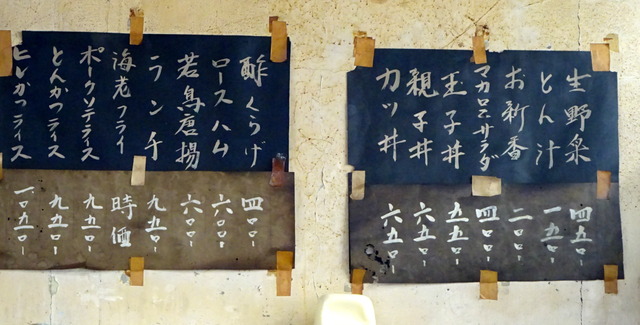 生野菜
とん汁
お新香
マカロニサラダ
玉子丼
親子丼
カツ丼
四五〇-
一五〇-
二〇〇-
四〇〇-
五五〇-
六五〇-
六五〇-
酢くらげ
ロースハム
若鳥唐揚
ランチ
海老フライ
ポークソテライス
とんかつライス
ヒレかつライス
四〇〇-
六〇〇-
六〇〇-
九五〇-
時価
九五〇-
九五〇-
一〇五〇-